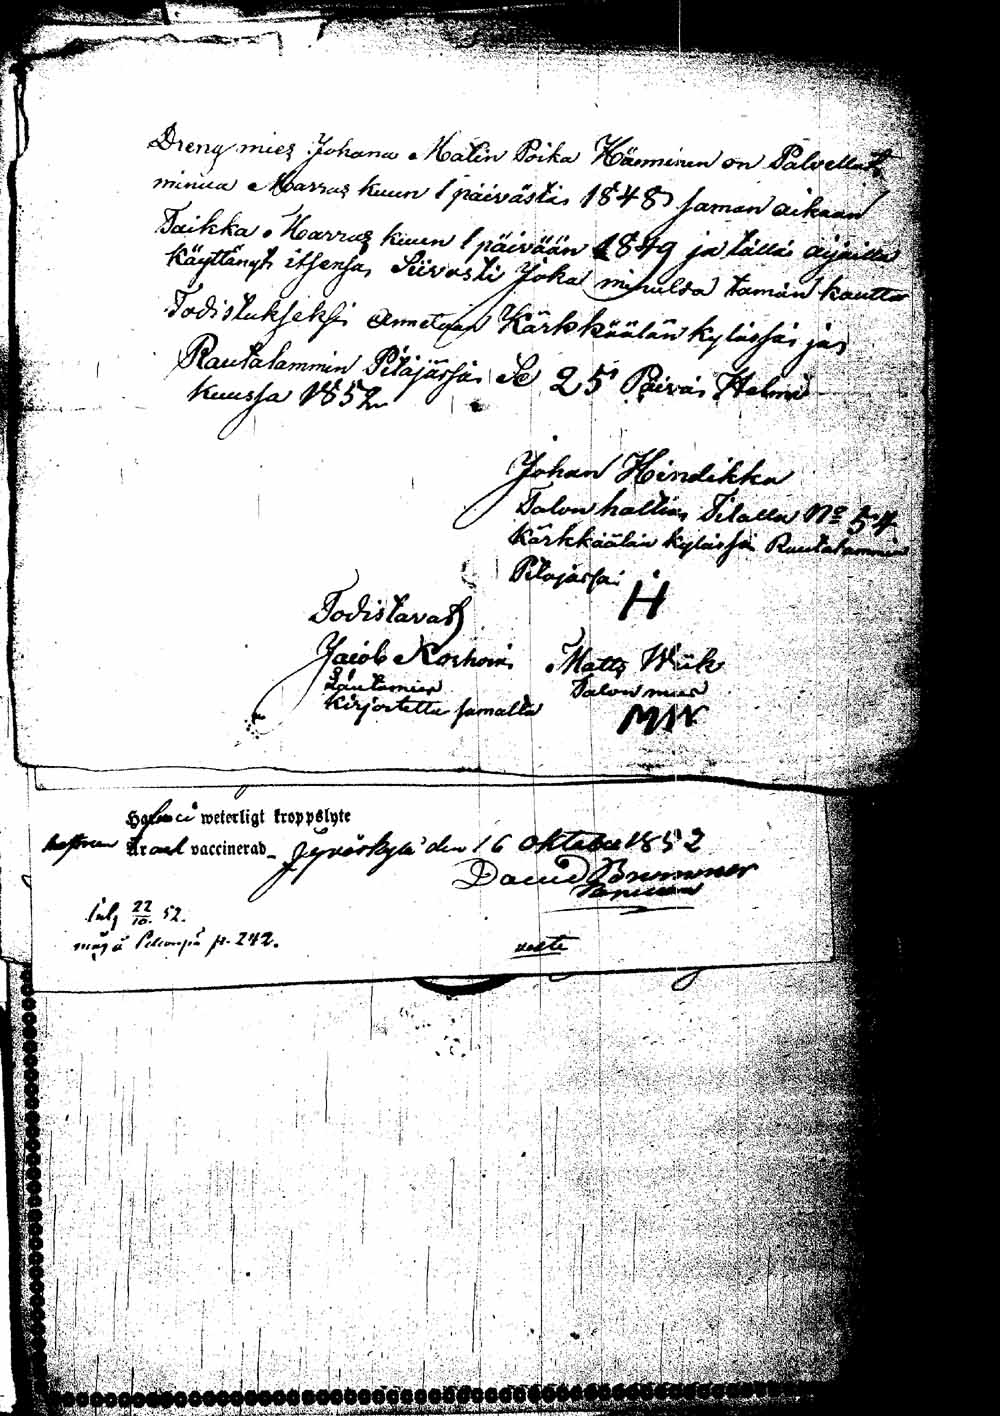 Dreng mies Johana Matin Poika Hänninen on Palvellut
minua Marras kuun 1 päivästä 1848 saman aikaan
Taikka Marras kuun 1 päivään 1849 ja tällä aijalla
käyttänyt itsensä Siivosti Joka minulda tämän kautta
Todistukseksi Annetaan Kärkkäälän kylässä ja
Rautalammin Pitäjässä Se 25 Päivä Helmi
kuussa 1852
Johan Hindikka
Talon haltia Tilalla No 54
Kärkkäälän kylässä Rautalammin
Pitäjässä
H
Todistavat
Jacob Korhoin Matts Wiik
Lautamies Talon mies
kirjoitettu samalta MW
weterligt kroppslyte
Är vaccinerad Jyväskylä den 16 Oktober 1852
David Brummer
22/10. 52.
p. 242.